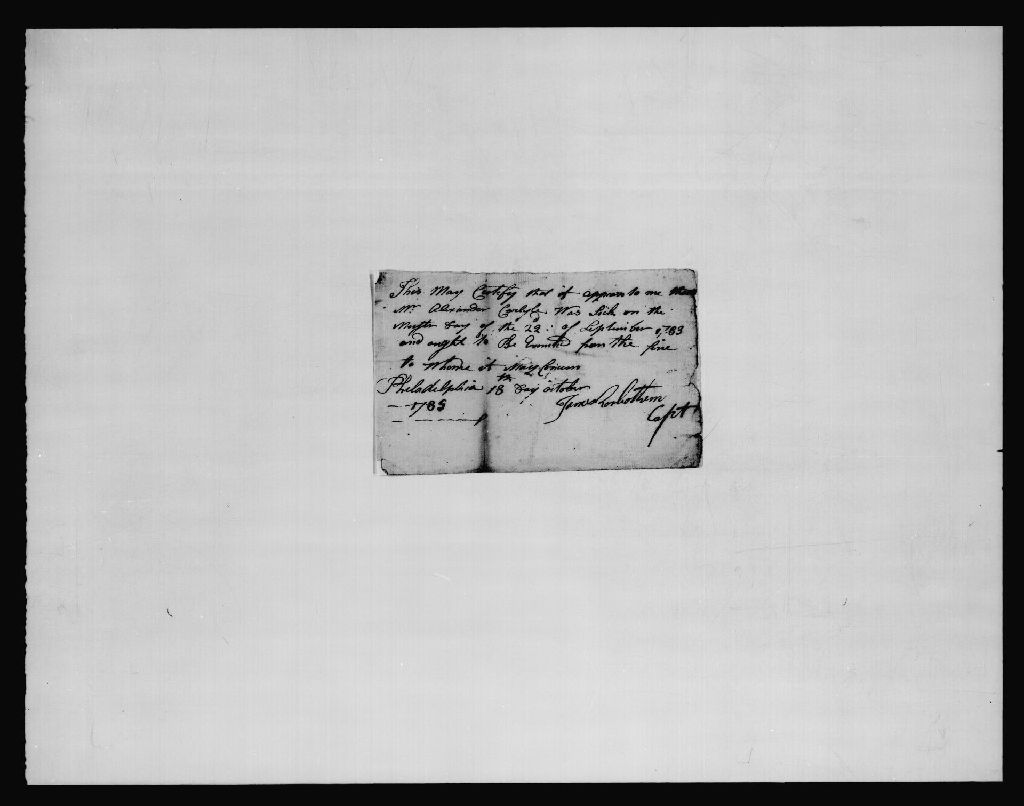 This May Certify that it appears to me that
Mr. Alexander Carlyle Was Sick on the
Muster Day of the 22: of September 1783
and ought to Be Remitted from the fine
to Whome it May Concern
Philadelphia 18th Day October
1783
James Capt